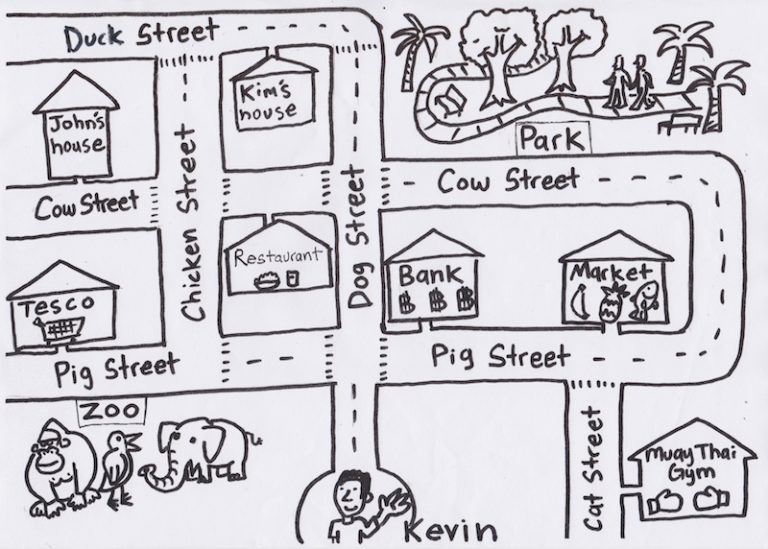 Duck Street
John's
house
Kim's
house
Park
Cow Street
Chicken Street
Dog Street
Cow Street
Restaurant
Tesco
Bank
฿ ฿ ฿
Market
Pig Street
Pig Street
ZOO
Cat Street
Muay Thai
Gym
Kevin